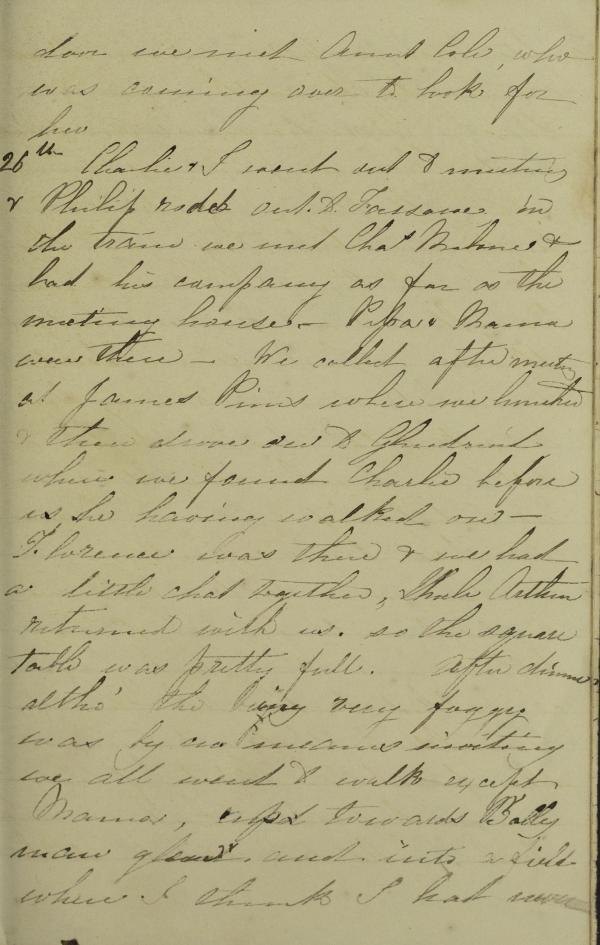 door we met Aunt Cole, who
was coming over to look for
her
26th Charlie & I went out to meeting
& Philip rode out to Tassave in
the train we met Chas Milne &
had his company as far as the
meeting house - Papa & Mama
were there - We called after meeting
at James Pims where we lunched
& then drove on to
where we found Charlie before
us, he having walked on -
Florence was there & we had
a little chat together, Uncle Arthur
returned with us. so the square
table was pretty full. After dinner
altho' the being very foggy
was by no means inviting
we all went to walk except
Mama, up towards Bally
man and into a field
where I think I had never